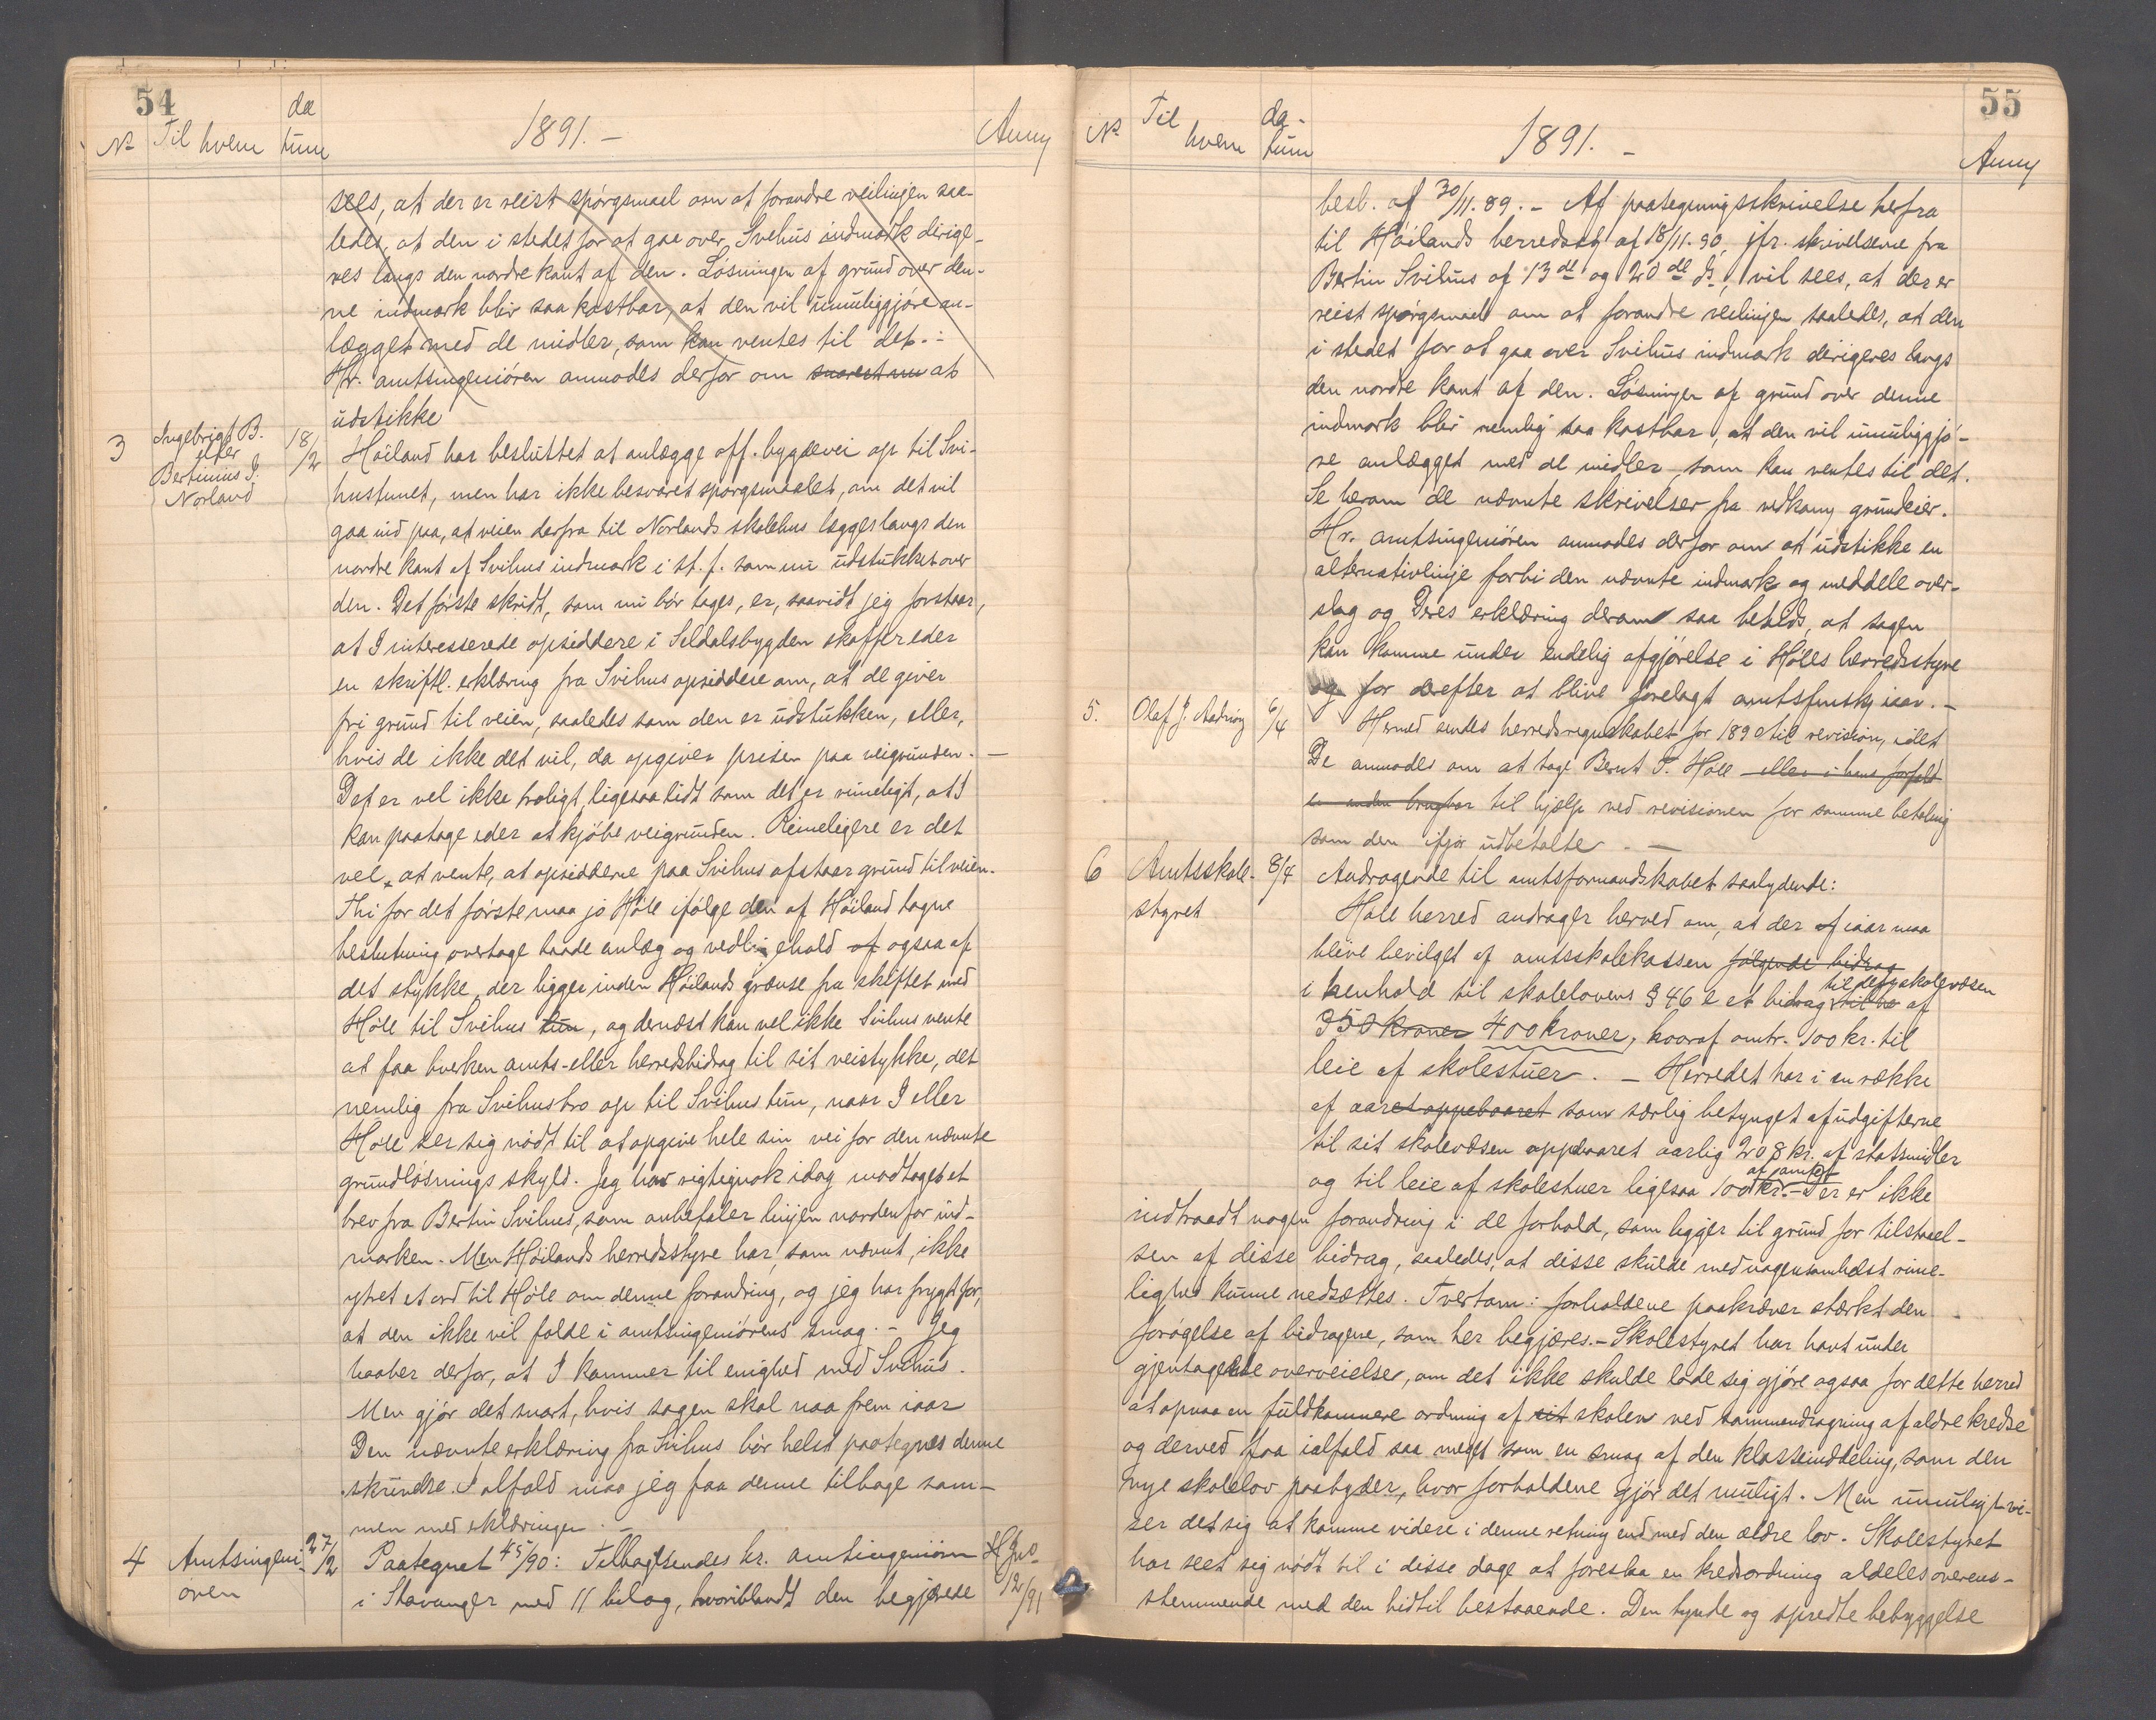 54
No Til hvem da tum 1891.- Anm
sees, at der er reist spörgsmaal om at forandre veilinjen saa-
ledes, at den i stedet for at gaa over Svihus indmark dirige-
res langs den nordre kant af den. Lösningen af grund over den-
ne indmark blir saa kostbar, at den vil umuliggjöre an-
lægget med de midler, som kan ventes til det.-
Hr. amtsingeniören anmodes derfor om snarest nu at
udstikke
3 Ingebrigt B. eller Bertinius I. Norland 18/2
Höiland har besluttet at anlægge off. bygdevei op til Svi-
hustunet, men har ikke besvaret spörgsmaalet, om det vil
gaa ind paa, at veien derfra til Norlands skolehus lægges langs den
nordre kant af Svihus indmark i st. f. som nu udstukket over
den. Det förste skridt, som nu bör tages, er, saavidt jeg forstaar,
at I interesserede opsiddere i Seldalsbygden skaffer eder
en skriftl. erklæring fra Svihus opsiddere om, at de giver
fri grund til veien, saaledes som den er udstukken, eller,
hvis de ikke det vil, da opgiver prisen paa veigrunden. -
Det er vel ikke troligt, ligesaalidt som det er rimeligt, at I
kan paatage eder at kjöbe veigrunden. Rimeligere er det
vel at vente, at opsidderne paa Svihus afstaar grund til veien.
Thi for det förste maa jo Höle ifölge den af Höiland tagne
beslutning overtage baade anlæg og vedligehold af ogsaa af
det stykke, der ligger inden Höilands grænse fra skiftet med
Höle til Svihus tun, og dernæst kan vel ikke Svihus vente
at faa hverken amts- eller herredsbidrag til sit veistykke, det
nemlig fra Svihusbro op til Svihus tun, naar I eller
Höle ser sig nödt til at opgive hele sin vei for den nævnte
grundlösnings skyld. Jeg har rigtignok idag modtaget et
brev fra Bertin Svihus, som anbefaler linjen nordenfor ind-
marken. Men Höilands herredsstyre har, som nævnt, ikke
ytret et ord til Höle om denne forandring, og jeg har frygt for,
at den ikke vil falde i amtsingeniörens smag. - Jeg
haaber derfor, at I kommer til enighed med Svihus.
Men gjör det snart, hvis sagen skal naa frem iaar
Den nævnte erklæring fra Svihus bör helst paategnes denne
skrivelse. I alfald maa jeg faa denne tilbage sam-
men med erklæringen. -
4 Amtsingeni- ören 27/2
Paategnet 45/90: Tilbagesendes hr. amtsingeniören
i Stavanger med 11 bilag, hvoriblandt den begjærede
55
No Til hvem da- tum 1891. - Anm
besl. af 30/11.89. - Af paategningsskrivelse herfra
til Höilands herredsst af 18/11-90, jfr. skrivelserne fra
Bertin Svihus af 13de og 20de ds, vil sees, at der er
reist spörgsmaal om at forandre veilinjen saaledes, at den
i stedet for at gaa over Svihus indmark dirigeres langs
den nordre kant af den. Lösningen af grund over denne
indmark blir nemlig saa kostbar, at den vil umuliggjö-
re anlægget med de midler, som kan ventes til det.
Se herom de nævnte skrivelser fra vedkomm grundeier.
Hr. amtsingeniören anmodes derfor om at udstikke en
alternativlinje forbi den nævnte indmark og meddele over-
slag og Deres erklæring derom saa betids, at sagen
kan komme under endelig afgjörelse i Höles herredsstyre
og for derefter at blive forelagt amtsfmsky iaar. -
5. Olaf J. 6/4
Hermed sendes herredsregnskabet for 1890 til revision, idet
De anmodes om at tage Bernt T. Höle eller i hans forfald
en anden brugbar til hjælp ved revisionen for samme betaling
som den ifjor udbetalte. -
6 Amtsskole- styret 8/4
Andragende til amtsformandskabet saalydende:
Höle herred andrager herved om, at der af iaar maa
blive bevilget af amtsskolekassen fölgende bidrag
i henhold til skolelovens § 46 2 et bidrag til dets skolevæsen af
350 kroner 400 kroner, hvoraf omtr. 100 kr. til
leie af skolestuer. - Herredet har i en række
af aar et oppebaaret som særlig betynget af udgifterne
til sit skolevæsen oppebaaret aarlig 208 kr. af statsmidler
og til leie af skolestuer ligesaa 100 kr. af amtet - Der er ikke
indtraadt nogen forandring i de forhold, som ligger til grund for tilstaael-
sen af disse bidrag, saaledes, at disse skulde med nogensomhelst rime-
lighed kunne nedsættes. Tvertom: forholdene paakræver stærkt den
forögelse af bidragene, som her begjæres.- Skolestyret har havt under
gjentagelse overveielser, om det ikke skulde lade sig gjöre ogsaa for dette herred
at opnaa en fuldkomnere ordning af sit skolev ved sammendragning af ældre kredse
og derved faa ialfald saa meget som en smag af den klasseinddeling, som den
nye skolelov paabyder, hvor forholdene gjör det muligt. Men umuligt vi-
ser det sig at komme videre i denne retning end med den ældre lov. Skolestyret
har seet sig nödt til i disse dage at foreslaa en kredsordning aldeles overens-
stemmende med den hidtil bestaaende. Den tynde og spredte bebyggelse